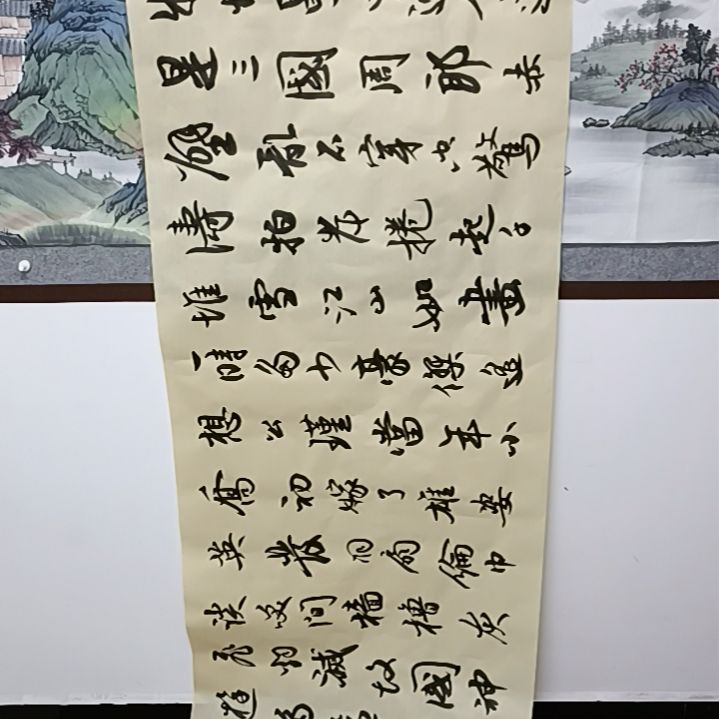 是三國周郎赤
壁亂石穿空驚
濤拍岸捲起千
堆雪江山如畫
一時多少豪傑遙
想公瑾當年小
喬初嫁了雄姿
英發羽扇綸巾
談笑間檣櫓灰
飛煙滅故國神
遊